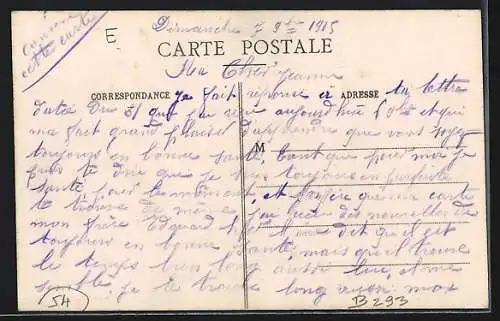 conserve
cette carte
E
Dimanche 7 9bre 1915
CARTE POSTALE
Ma Chère Jeanne
CORRESPONDANCE Je fait réponse à ADRESSE ta lettre
datée du 31 que j'ai reçu aujourd'hui 6 9bre et qui
ma fait grand plaisir d'apprendre que vous soyez
toujours en bonne santé, tant que pour moi je
M
puis te dire que je suis toujours en parfaite
santé pour le moment, et j'espère que ma carte
te trouve de même j'ai reçu des nouvelles de
mon frère Edouard dit qu'il est
toujours en bonne santé, mais qu'il trouve
le temps bien long aussi lui, et me
je te trouve long aussi moi
54
B293